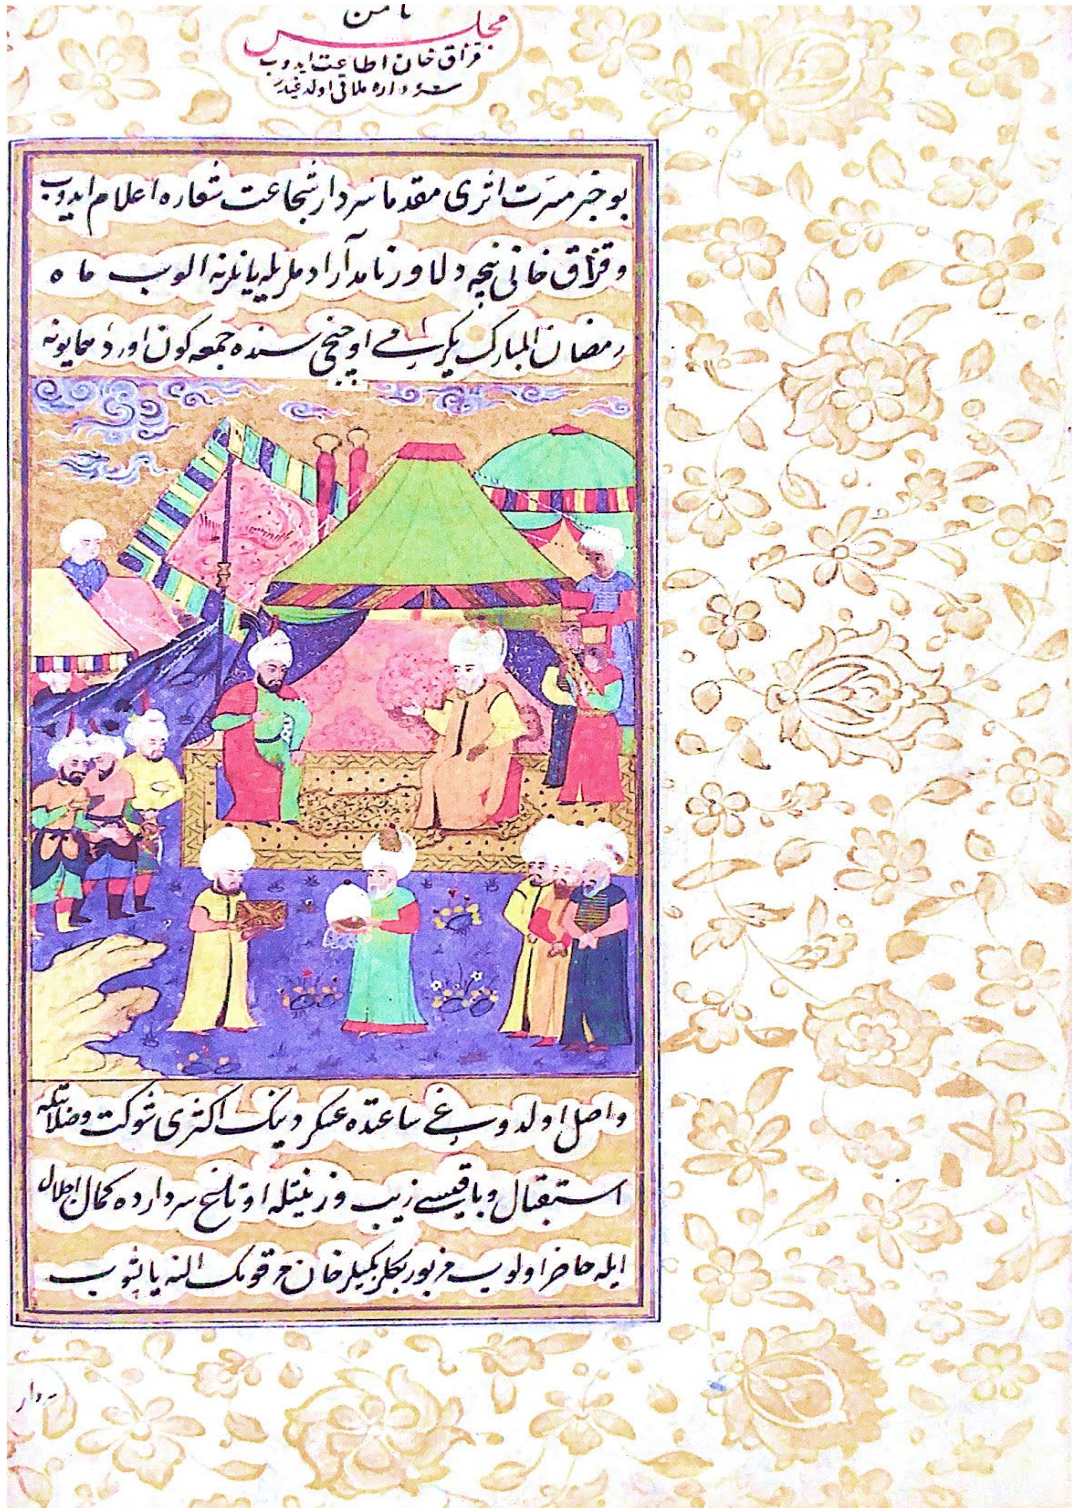 مجلس ثامن
قزاق خان اطاعت ایدوب
سرداره ملاقی اولدغیدر
بو خبر مسرت اثری مقدما سردار شجاعت شعاره اعلام ایدوب
و قزاق خانی نیجه دلاور نامدار ادملریله یانلرنه الوب ماه
رمضان المبارك یکرمی اوچنجی سنده جمعه کون اوردوی همایونه
واصل اولدوغی ساعتده عسکردینك اکثری شوکت وصلابتله
استقبال و باقیسی زیب و زینتله اوتاغ سردارده کمال اجلال
ایله حاضر اولوب مزبور بکلربکیلر خان مرقومك النه یاپشوب
سردار